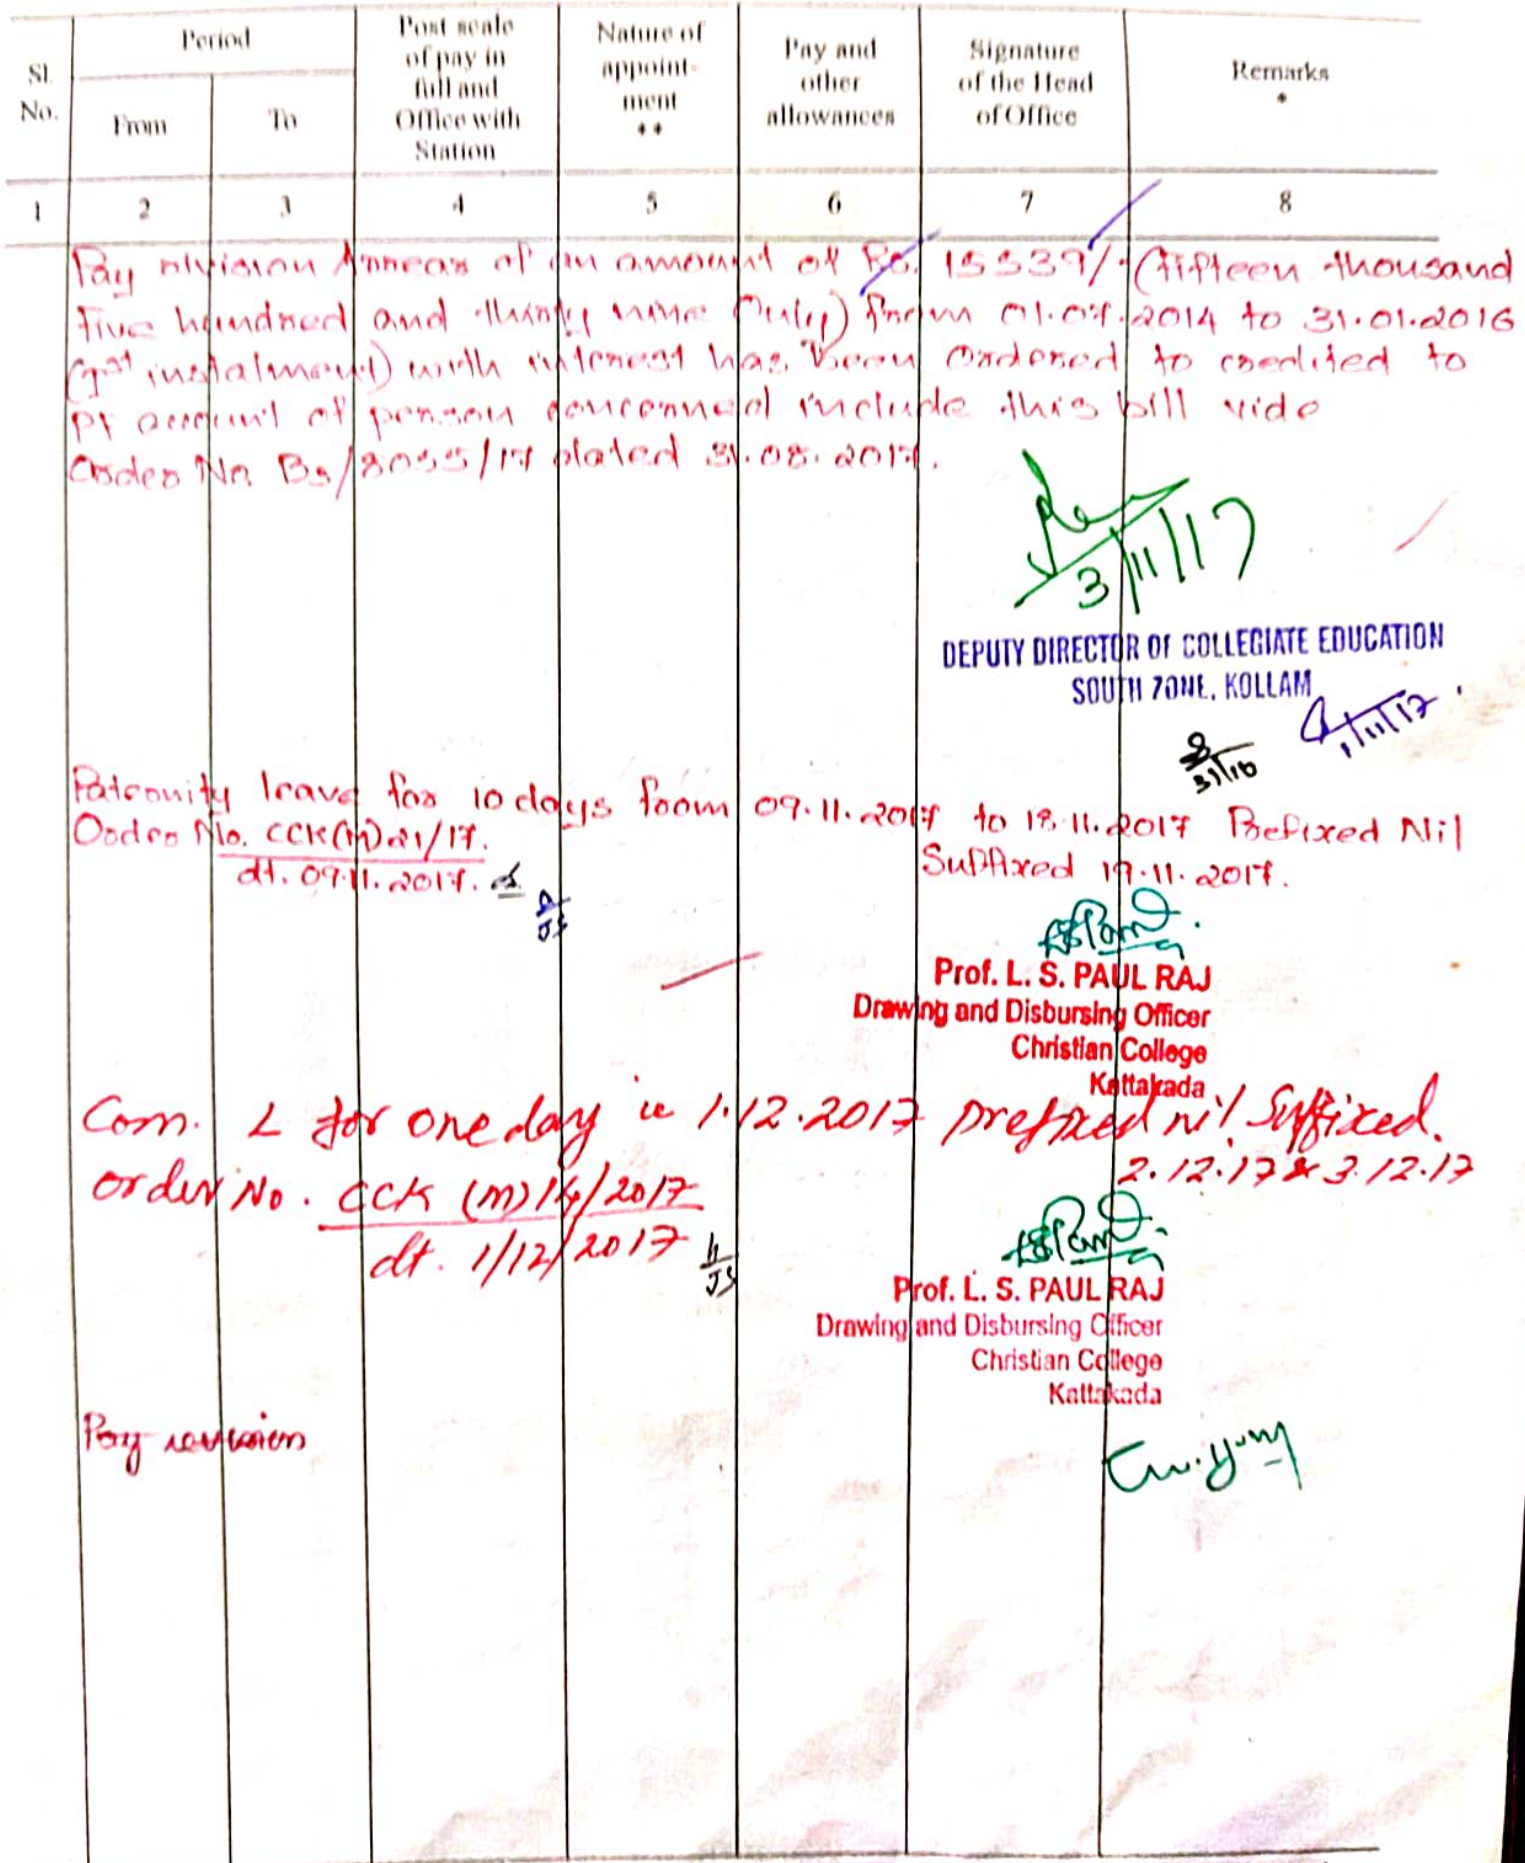 Sl. No.
Period
From
To
Post scale of pay in full and Office with Station
Nature of appoint-ment **
Pay and other allowances
Signature of the Head of Office
Remarks *
1 2 3 4 5 6 7 8
Pay revision Arrear of an amount of Rs. 15539/- (fifteen thousand
five hundred and thirty nine Only) from 01.07.2014 to 31.01.2016
(1st instalment) with interest has been ordered to credited to
PF account of person concerned include this bill vide
Order No. B3/8055/17 dated 31.08.2017.
3/11/17
DEPUTY DIRECTOR OF COLLEGIATE EDUCATION
SOUTH ZONE, KOLLAM
1/11/17
31/10
Paternity leave for 10 days from 09.11.2017 to 18.11.2017 Prefixed Nil
Order No. CCK(M)21/17. Suffixed 19.11.2017.
dt. 09.11.2017.
JS
Prof. L. S. PAUL RAJ
Drawing and Disbursing Officer
Christian College
Kattakada
Com. L for one day ie 1.12.2017 prefixed nil Suffixed.
2.12.17 & 3.12.17
order No. CCK (M) 14/2017
dt. 1/12/2017
JS
Prof. L. S. PAUL RAJ
Drawing and Disbursing Officer
Christian College
Kattakada
Pay revision